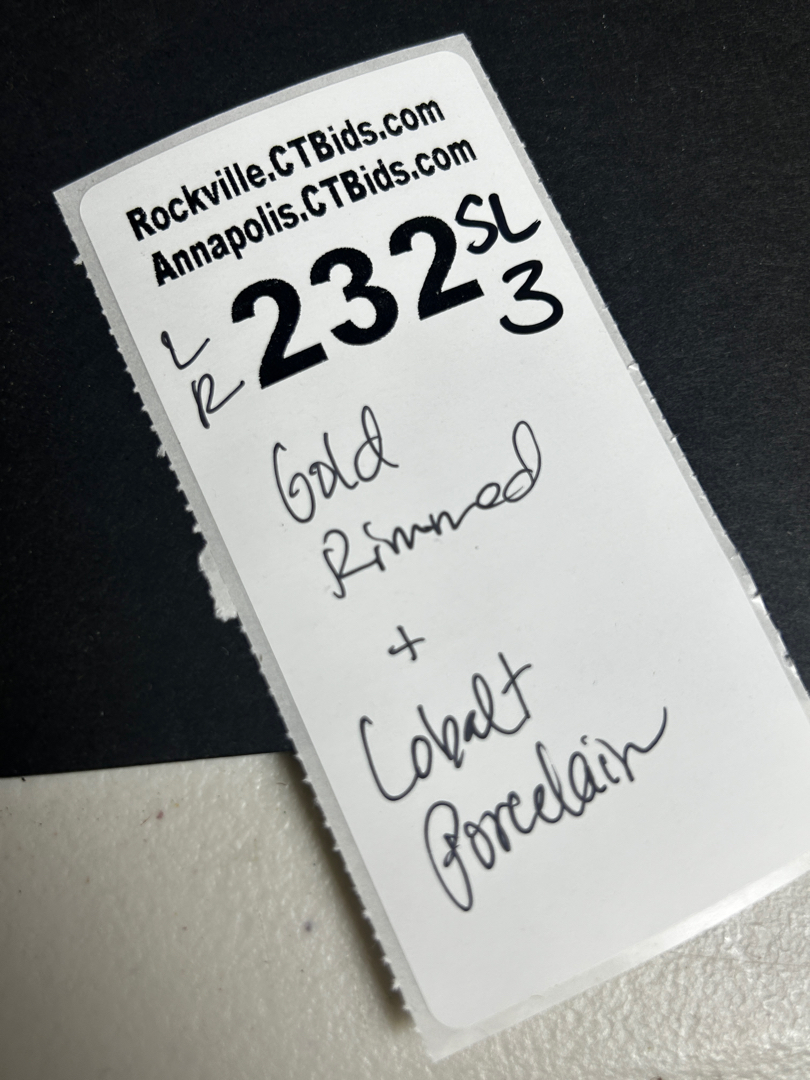 Rockville.CTBids.com
Annapolis.CTBids.com
232 SL
3
LR
Gold
Rimmed
+
Cobalt
Porcelain